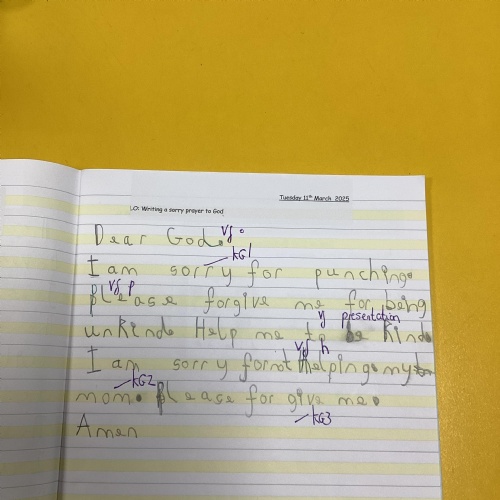 Tuesday 11th March 2025
LO: Writing a sorry prayer to God
Dear God.
KG1
I am sorry for punching.
please forgive me for being
presentation
unkind. Help me to be kind.
I am sorry for not helping. my
KG2
mom. Please for give me.
KG3
Amen